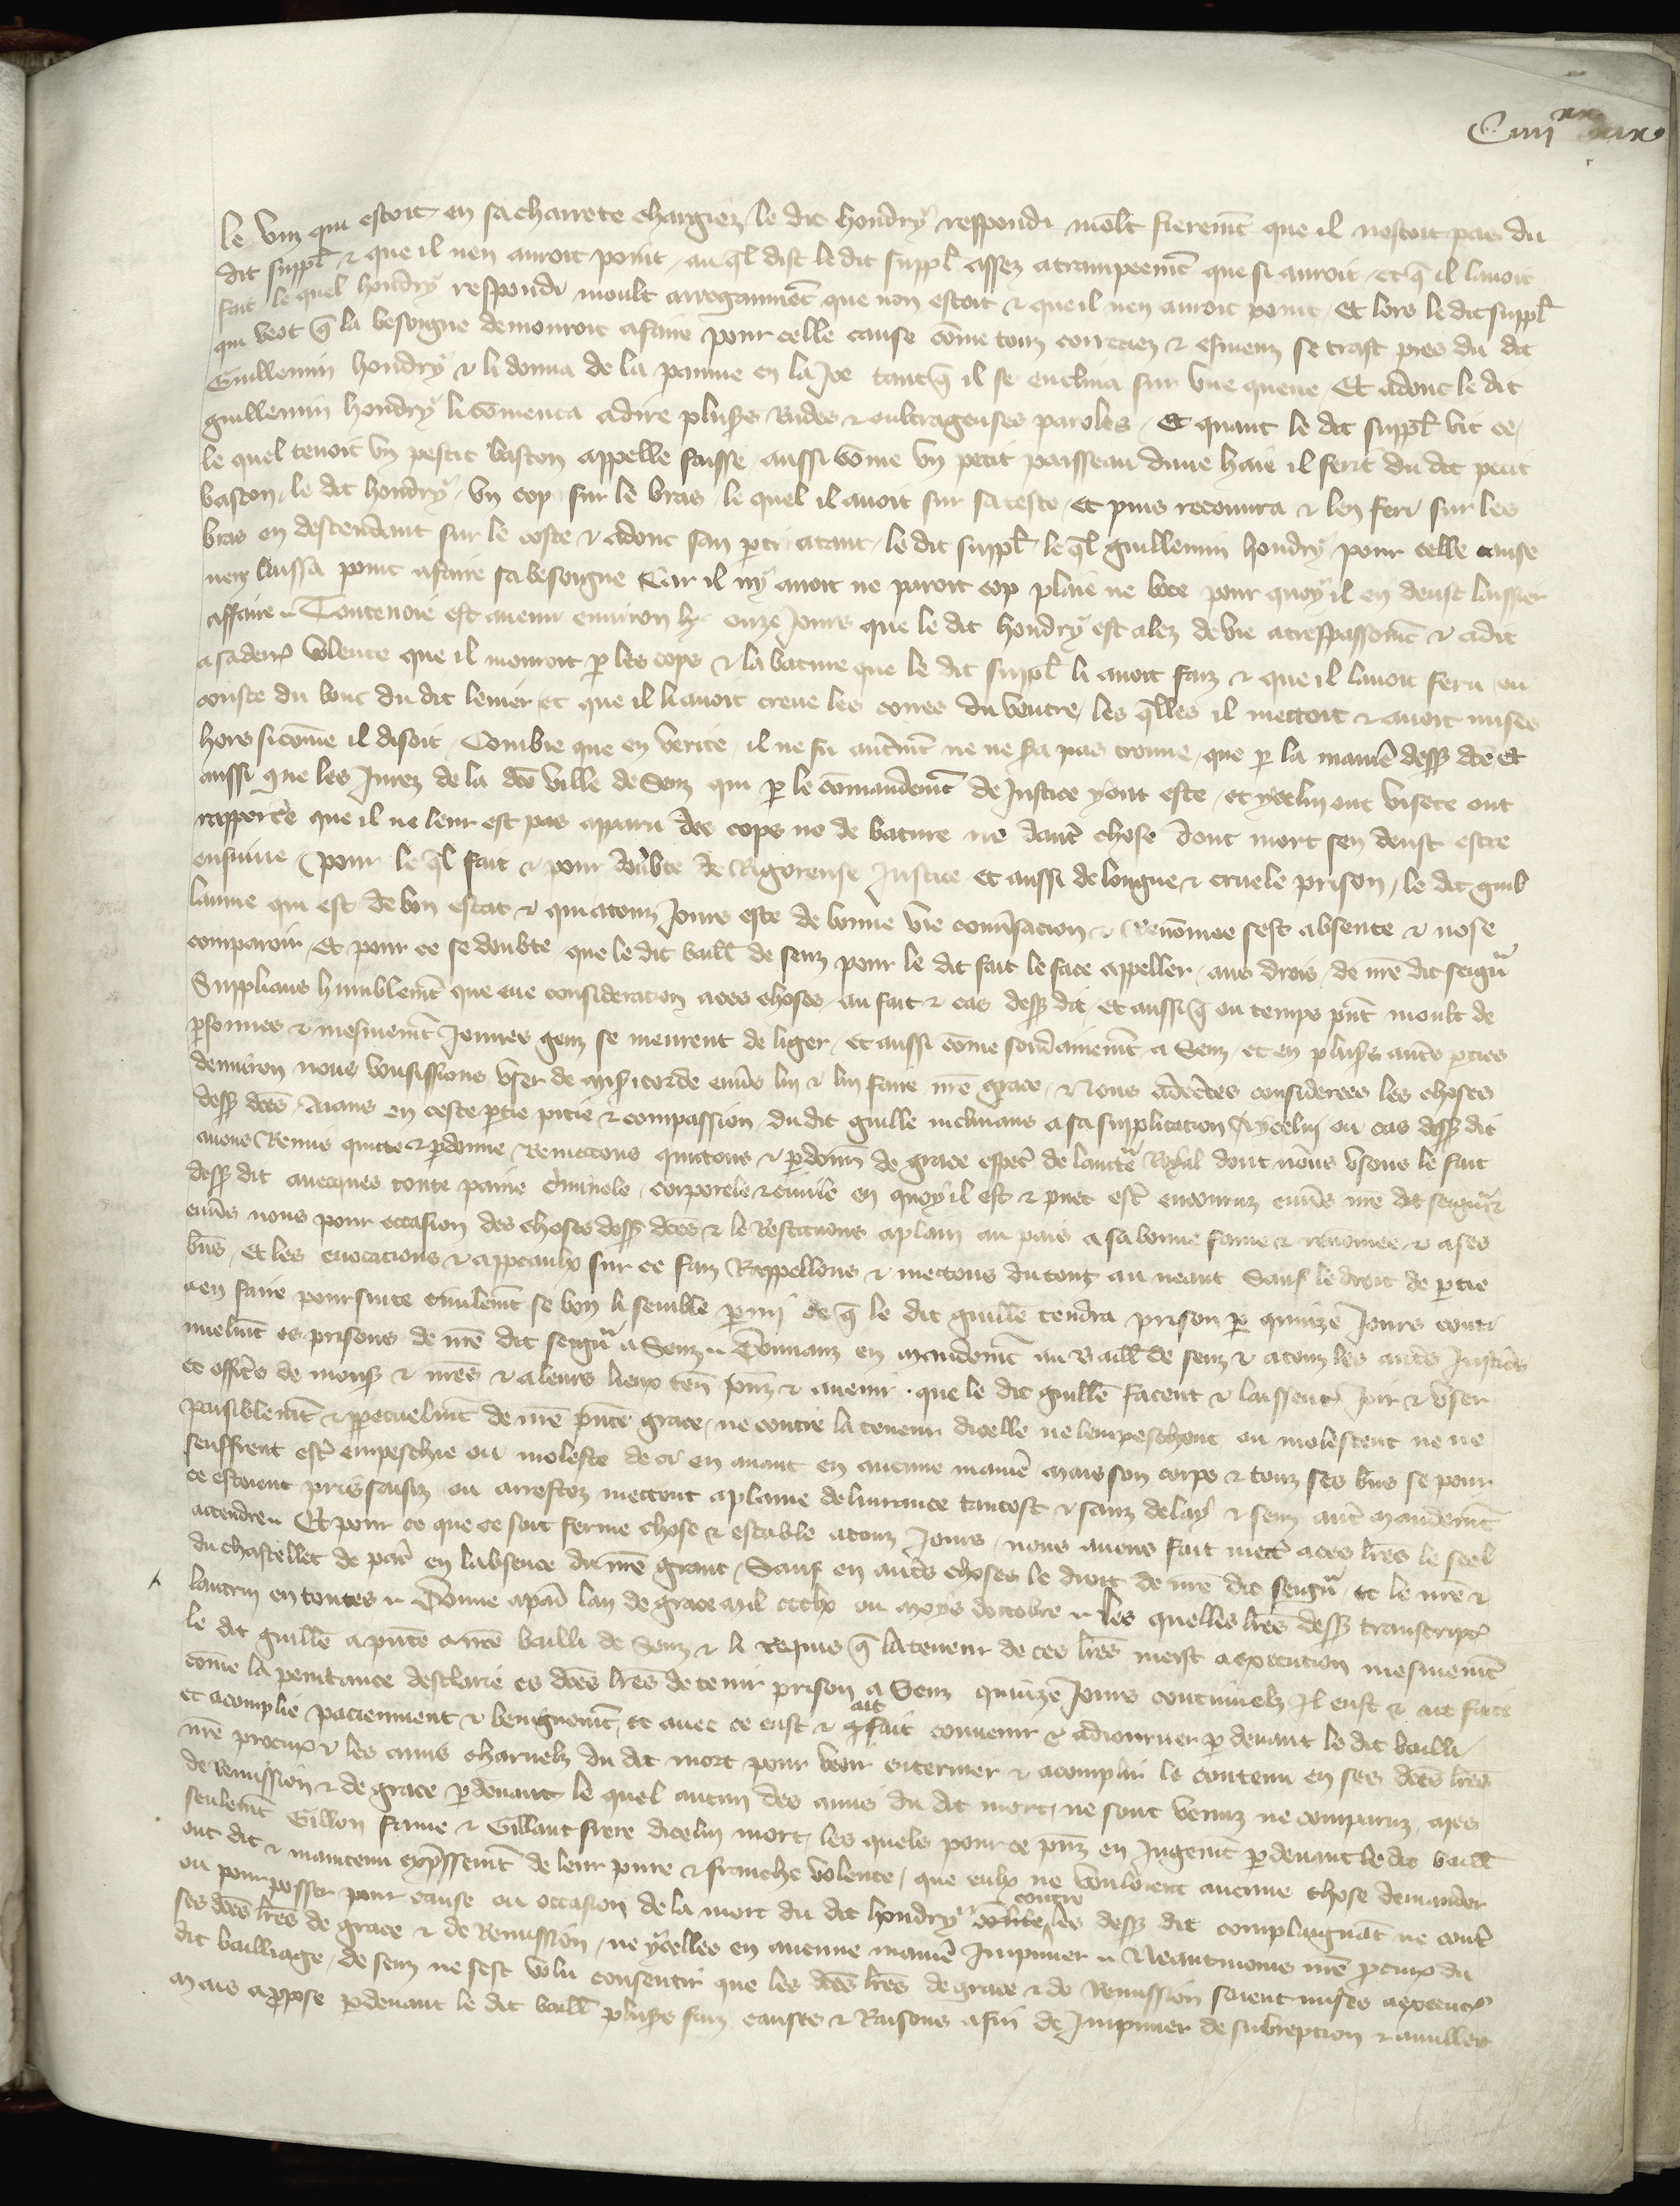 C iiii xx xix
le vin qui estoit en sa charrete chargiez le dit hondry respondi mōlt fieremt que il nestoit pas du
dit suppl̄ & que il nen auroit point au q̄l dist le dit suppl̄ assez atrampeemt que si auroit et q̄ il lauoit
fait le quel hondry respondi moult arrogaument que non estoit & que il nen auroit point Et lors le dit suppl̄
qui veot q̄ la besoigne demouroit a faire pour celle cause cōme touz correciez & esmeuz se traist pres du dit
Guillemin hondry & li donna de la paume en la Joe tant q̄ il se enclina sur vne queue Et adonc le dit
guillemin hondry li cōmenca a dire plus̄s Rudes & oultrageuses paroles Et quant le dit suppl̄ vit ce
le quel tenoit vn pestit baston appelle faisse aussi cōme vn petit paisseau dune haie il feri du dit petit
baston le dit hondry vn cop sur le bras le quel il auoit sur sa teste Et puis recouura & len feri sur les
bras en descendant sur le coste & adonc san p̄ti atant le dit suppl̄ le q̄l guillemin hondry pour celle cause
nen laissa point a faire sa besoigne Car il ny auoit ne paroit cop plaie ne boce pour quoy il en deust laissier
affaire Toutevoie est auenu enuiron x ou onze Jours que le dit hondry est alez de vie a trespassemt & a dit
a sa derr̄ volente que il mouroit p̄ les cops & la bature que le dit suppl̄ li auoit faiz & que il lauoit feru ou
couste du bout du dit leuier et que il li auoit creue les corees du ventre les q̄lles il mettoit & auoit mises
hors sicōme il disoit Combiē que en verite il ne fu aut̄emt ne ne s̄ra pas trouue que p̄ la manie dess̄ dc̄e Et
aussi que les Jurez de la dc̄e ville de Senz qui p̄ le cōmandemt de Justice y ont este et ycelui ont visete ont
rapporte que il ne leur est pas apparu des cops ne de bature ne daut̄ chose dont mort sen deust estre
ensuiuie pour le q̄l fait & pour doubte de Rigoreuse Justice et aussi de longue & cruele prison le dit guil
laume qui est de bon estat & qui a touz Jours este de bonne vie conūsacion & Renōmee sest absente & nose
comparoir Et pour ce se doubte que le dit baill̄ de senz pour le dit fait le face appeller aus drois de nr̄e dit seigr̄
Supplians humblemt que eue consideracion a ces choses au fait & cas dess̄ dit et aussi q̄ ou temps p̄nt moult de
p̄sonnes & mesmemt Jeunes gens se meurent de liger et aussi cōme soudainemt a Senz et en plus̄s aut̄s p̄ties
denuiron nous vousissions vser de mis̄icorde enu̅s lui & lui faire nr̄e grace & Nous adcc̄tes considerees les choses
dess̄ dc̄es Aians en ceste p̄tie pitie & compassion du dit guille inclinans a sa supplicacion A ycelui ou cas dess̄ dit
auons Remis quitte & p̄donne Remettons quittons & p̄donn̄ de grace esp̄ec de lauct̄e Royal dont nous vsons le fait
dess̄ dit auecques toute paine c̄minele corporele & ciuile en quoy il est & puet est̄ encouruz enu̅s nr̄e dit seigr̄ &
enu̅s nous pour occasion des choses dess̄ dc̄es & le Restituons a plain au pais a sa bonne fame & renōmee & a ses
biēs Et les euocacions & appeaulx sur ce faiz Rappellons & mettons du tout au neant Sauf le droit de p̄tie
a en faire poursuite ciuilemt se bon li semble p̄mi ce q̄ le dit guille tendra prison p̄ quinze Jours conti
nuelmt es prisons de nr̄e dit seigr̄ a Senz Donnanz en mandemt au Baill̄ de senz & a touz les aut̄s Justic̄s
et offic̄s de mons̄ & nr̄es & a leurs lieux ten̄ p̄nz & auenir que le dit guillē facent & laissent Joir & vser
paisiblemt & p̄petuelmt de nr̄e p̄nte grace ne contre la teneur dicelle ne lempeschent ou molestent ne ne
seuffrent est̄ empeschie ou moleste de ci en auant en aucune manie mais son corps & touz ses biēs se pour
ce estoient pris saisiz ou arrestez mettent a plaine deliurance tantost & sanz delay & senz aut̄ mandemt
attendre Et pour ce que ce soit ferme chose & estable a touz Jours nous auons fait mett̄ a ces lr̄es le seel
du chastellet de par̄ en labsence du nr̄e grant Sauf en aut̄s choses le droit de nr̄e dit seigr̄ et le nr̄e &
lautrui en toutes Donne a par̄ lan de grace mil ccclx ou moys doctobre les quelles lr̄es dess̄ transcript̄
le dit guillē a p̄nte a nr̄e bailli de Senz & li requis q̄ la teneur de ces lr̄es meist a execution mesmemt
cōme la penitance desclarie es dc̄es lr̄es de tenir prison a Senz quinze Jours continuelz Il eust & ait faite
et acomplie paciemment & benignemt et auec ce eust & ait fait conuenir & adiourner p̄ deuant le dit bailli
nr̄e procur̄ & les amis charnelz du dit mort pour veoir enteriner & acomplir le contenu en ses dc̄es lr̄es
de Remission & de grace p̄deuant le quel aucun des amis du dit mort ne sont venuz ne comparuz Mes
seulemt Gillon fame & Gillaut frere dicelui mort les quels pour ce p̄nz en Jugemt p̄deuant le dit baill̄
ont dit & maintenu exp̄ssemt de leur pure & franche volente que eulx ne vouloient aucune chose demander
ou pourposser pour cause ou occasion de la mort du dit hondry contre les dess̄ dit complaignāt ne cont̄
ses dc̄es lr̄es de grace & de Remission ne ycelles en aucune manie Impuner Neantmoins nr̄e p̄cur̄ du
dit bailliage de senz ne sest volu consentir que les dc̄es lr̄es de grace & de Remission soient mises a execut̄
Mais a p̄pose p̄deuant le dit baill̄ plus̄s faiz causes & Raisons afin de Impuner de subrepcion & nullite